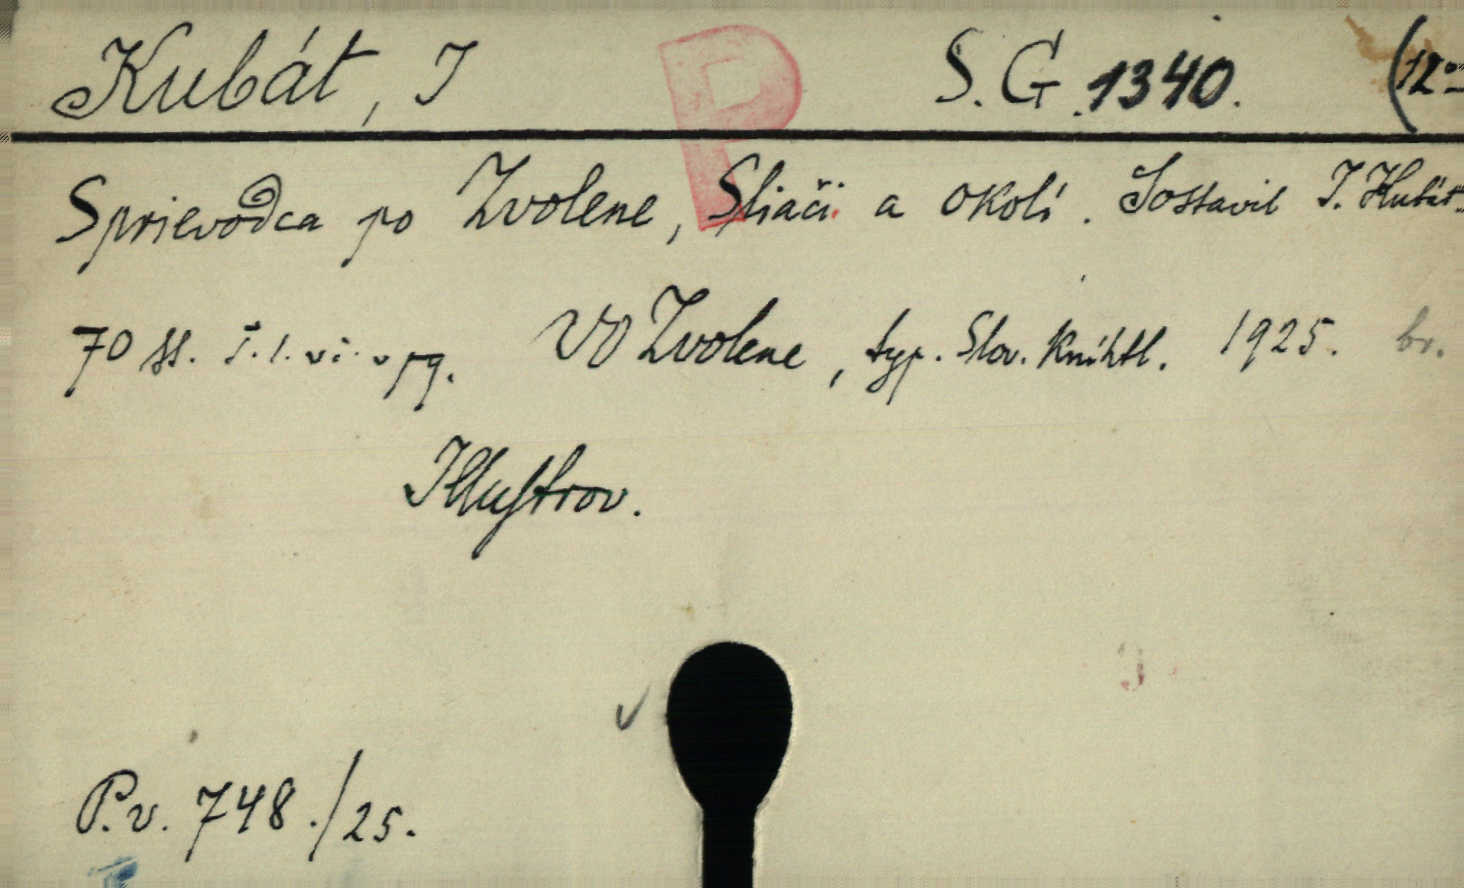 Kubát, J S. G. 1340. (12°
P
Sprievodca po Zvolene, Sliači a okolí. Sostavil J. Kubát.
70 ss. v pg. Vo Zvolene, typ. Slov. Kníhtl. 1925. br.
Illustrov.
P.v. 748./25.